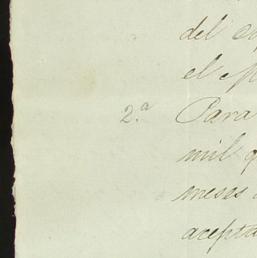 del
el
2.ª Para
mil q
meses
acepta